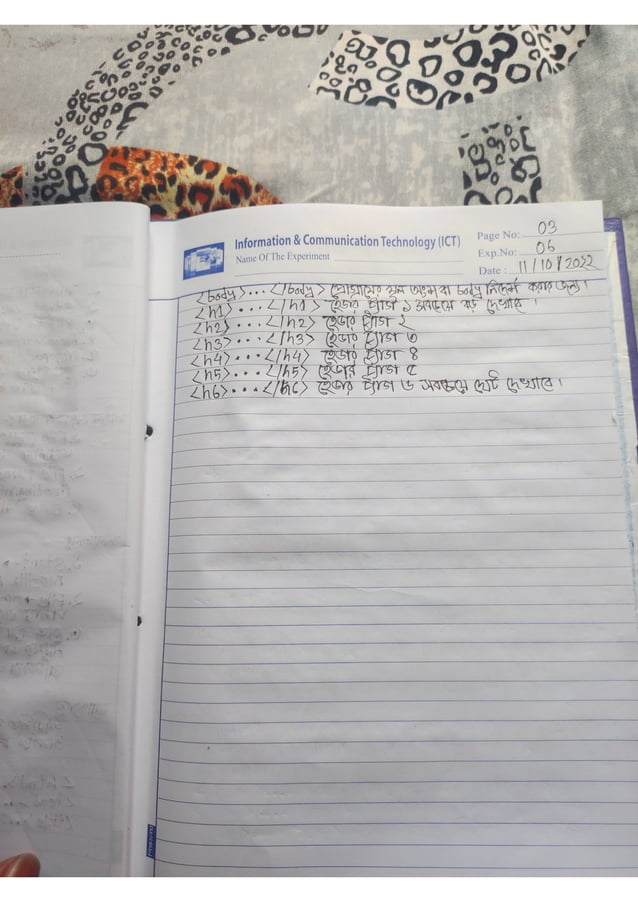 Information & Communication Technology (ICT)
Name Of The Experiment
Page No: 03
Exp.No: 06
Date : 11/10/2022
<body>...</body> প্রোগ্রামের মূল অংশ বা body নির্দেশ করার জন্য।
<h1>...</h1> হেডার ট্যাগ ১ সবচেয়ে বড় দেখাবে।
<h2>...</h2> হেডার ট্যাগ ২
<h3>...</h3> হেডার ট্যাগ ৩
<h4>...</h4> হেডার ট্যাগ ৪
<h5>...</h5> হেডার ট্যাগ ৫
<h6>...</h6> হেডার ট্যাগ ৬ সবচেয়ে ছোট দেখাবে।